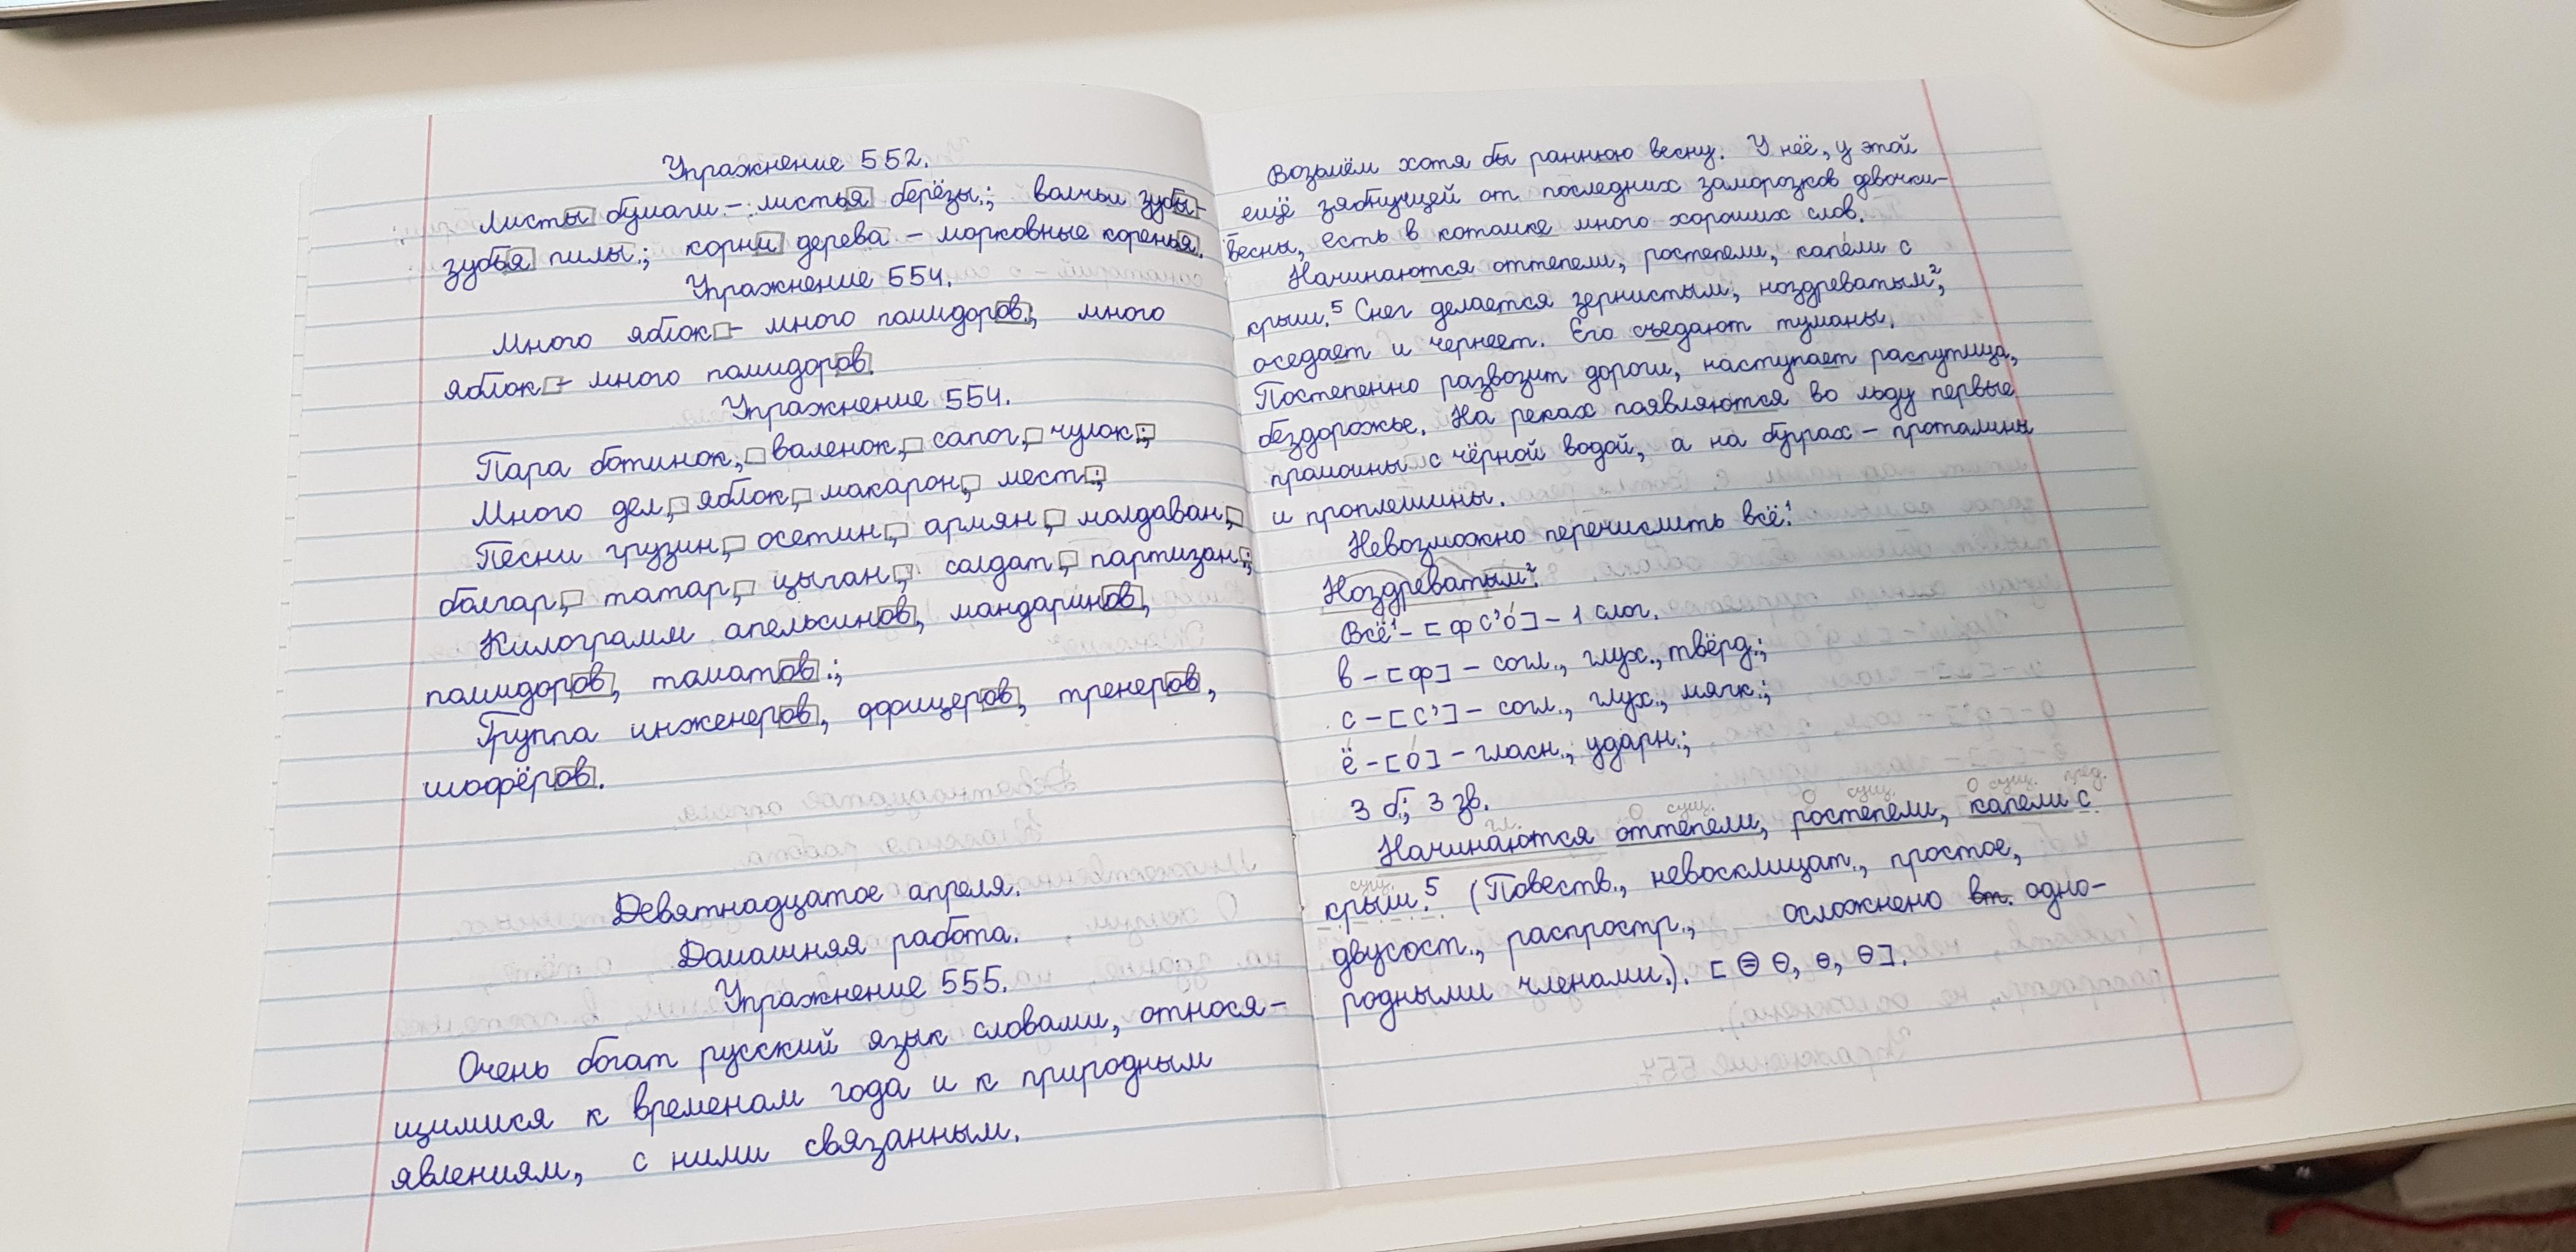 Упражнение 552.
Листы бумаги – листья берёзы.; волчьи зубы –
зубья пилы.; корни дерева – морковные коренья.
Упражнение 554.
Много яблок – много помидоров., много
яблок – много помидоров.
Упражнение 554.
Пара ботинок, валенок, сапог, чулок;
Много дел, яблок, макарон, мест;
Песни грузин, осетин, армян, молдаван,
болгар, татар, цыган, солдат, партизан;
Килограмм апельсинов, мандаринов,
помидоров, томатов.;
Группа инженеров, офицеров, тренеров,
шофёров.
Девятнадцатое апреля.
Домашняя работа.
Упражнение 555.
Очень богат русский язык словами, относя-
щимися к временам года и к природным
явлениям, с ними связанным.
Возьмём хотя бы раннюю весну. У неё, у этой
ещё зябнущей от последних заморозков девочки-
весны, есть в котомке много хороших слов.
Начинаются оттепели, ростепели, капели с
крыш.⁵ Снег делается зернистым, ноздреватым²,
оседает и чернеет. Его съедают туманы.
Постепенно развозит дороги, наступает распутица,
бездорожье. На реках появляются во льду первые
промоины с чёрной водой, а на буграх – проталины
и проплешины.
Невозможно перечислить всё¹!
Ноздреватым².
Всё¹ – [фс’о́] – 1 слог.
в – [ф] – согл., глух., твёрд.;
с – [с’] – согл., глух., мягк.;
ё – [о́] – гласн., ударн.;
3 б.; 3 зв.
гл. сущ. сущ. сущ. пред.
Начинаются оттепели, ростепели, капели с
сущ.
крыш.⁵ (Повеств., невосклицат., простое,
двусост., распростр., осложнено вт. одно-
родными членами.). [⊖ ⊖, ⊖, ⊖].